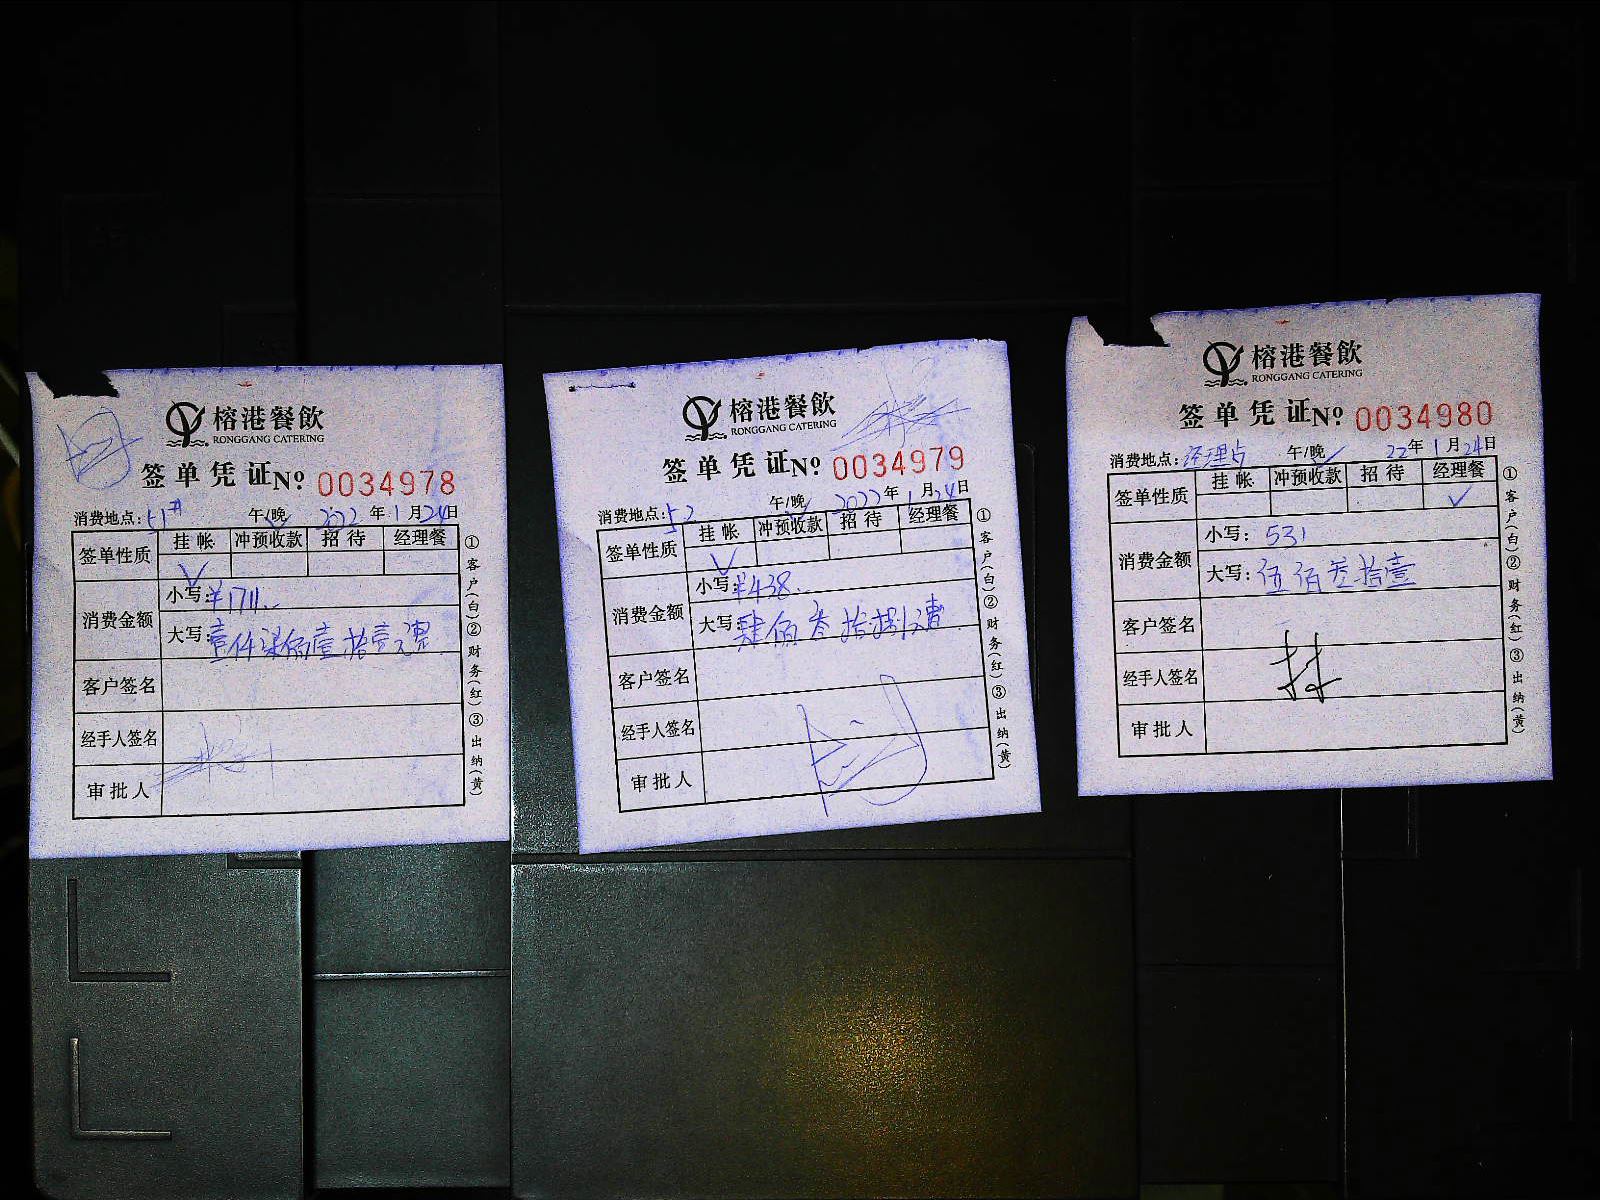 榕港餐飲
RONGGANG CATERING
签单凭证№ 0034978
消费地点:51# 午/晚 2022年1月24日
签单性质 挂帐 冲预收款 招待 经理餐
√
消费金额 小写:¥1711..
大写:壹仟柒佰壹拾壹元整
客户签名
经手人签名
审批人
①客户(白)②财务(红)③出纳(黄)
榕港餐飲
RONGGANG CATERING
签单凭证№ 0034979
消费地点:52 午/晚 2022年1月24日
签单性质 挂帐 冲预收款 招待 经理餐
√
消费金额 小写:¥438..
大写:肆佰叁拾捌元整
客户签名
经手人签名
审批人
①客户(白)②财务(红)③出纳(黄)
榕港餐飲
RONGGANG CATERING
签单凭证№ 0034980
消费地点:经理 午/晚 22年1月24日
签单性质 挂帐 冲预收款 招待 经理餐
√
消费金额 小写:531
大写:伍佰叁拾壹
客户签名
经手人签名
审批人
①客户(白)②财务(红)③出纳(黄)